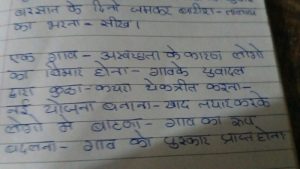 बरसात के दिनो जमकर बारीश - तालाब
का भरना - सीख।
एक गाव - अस्वच्छता के कारण लोगो
का बिमार होना - गावके युवादल
द्वारा कुडा-कचरा एकत्रीत करना -
नई योजना बनाना - खाद तयार करके
लोगो मे बाटना - गाव का रूप
बदलना - गाव को पुरस्कार प्राप्त होना।